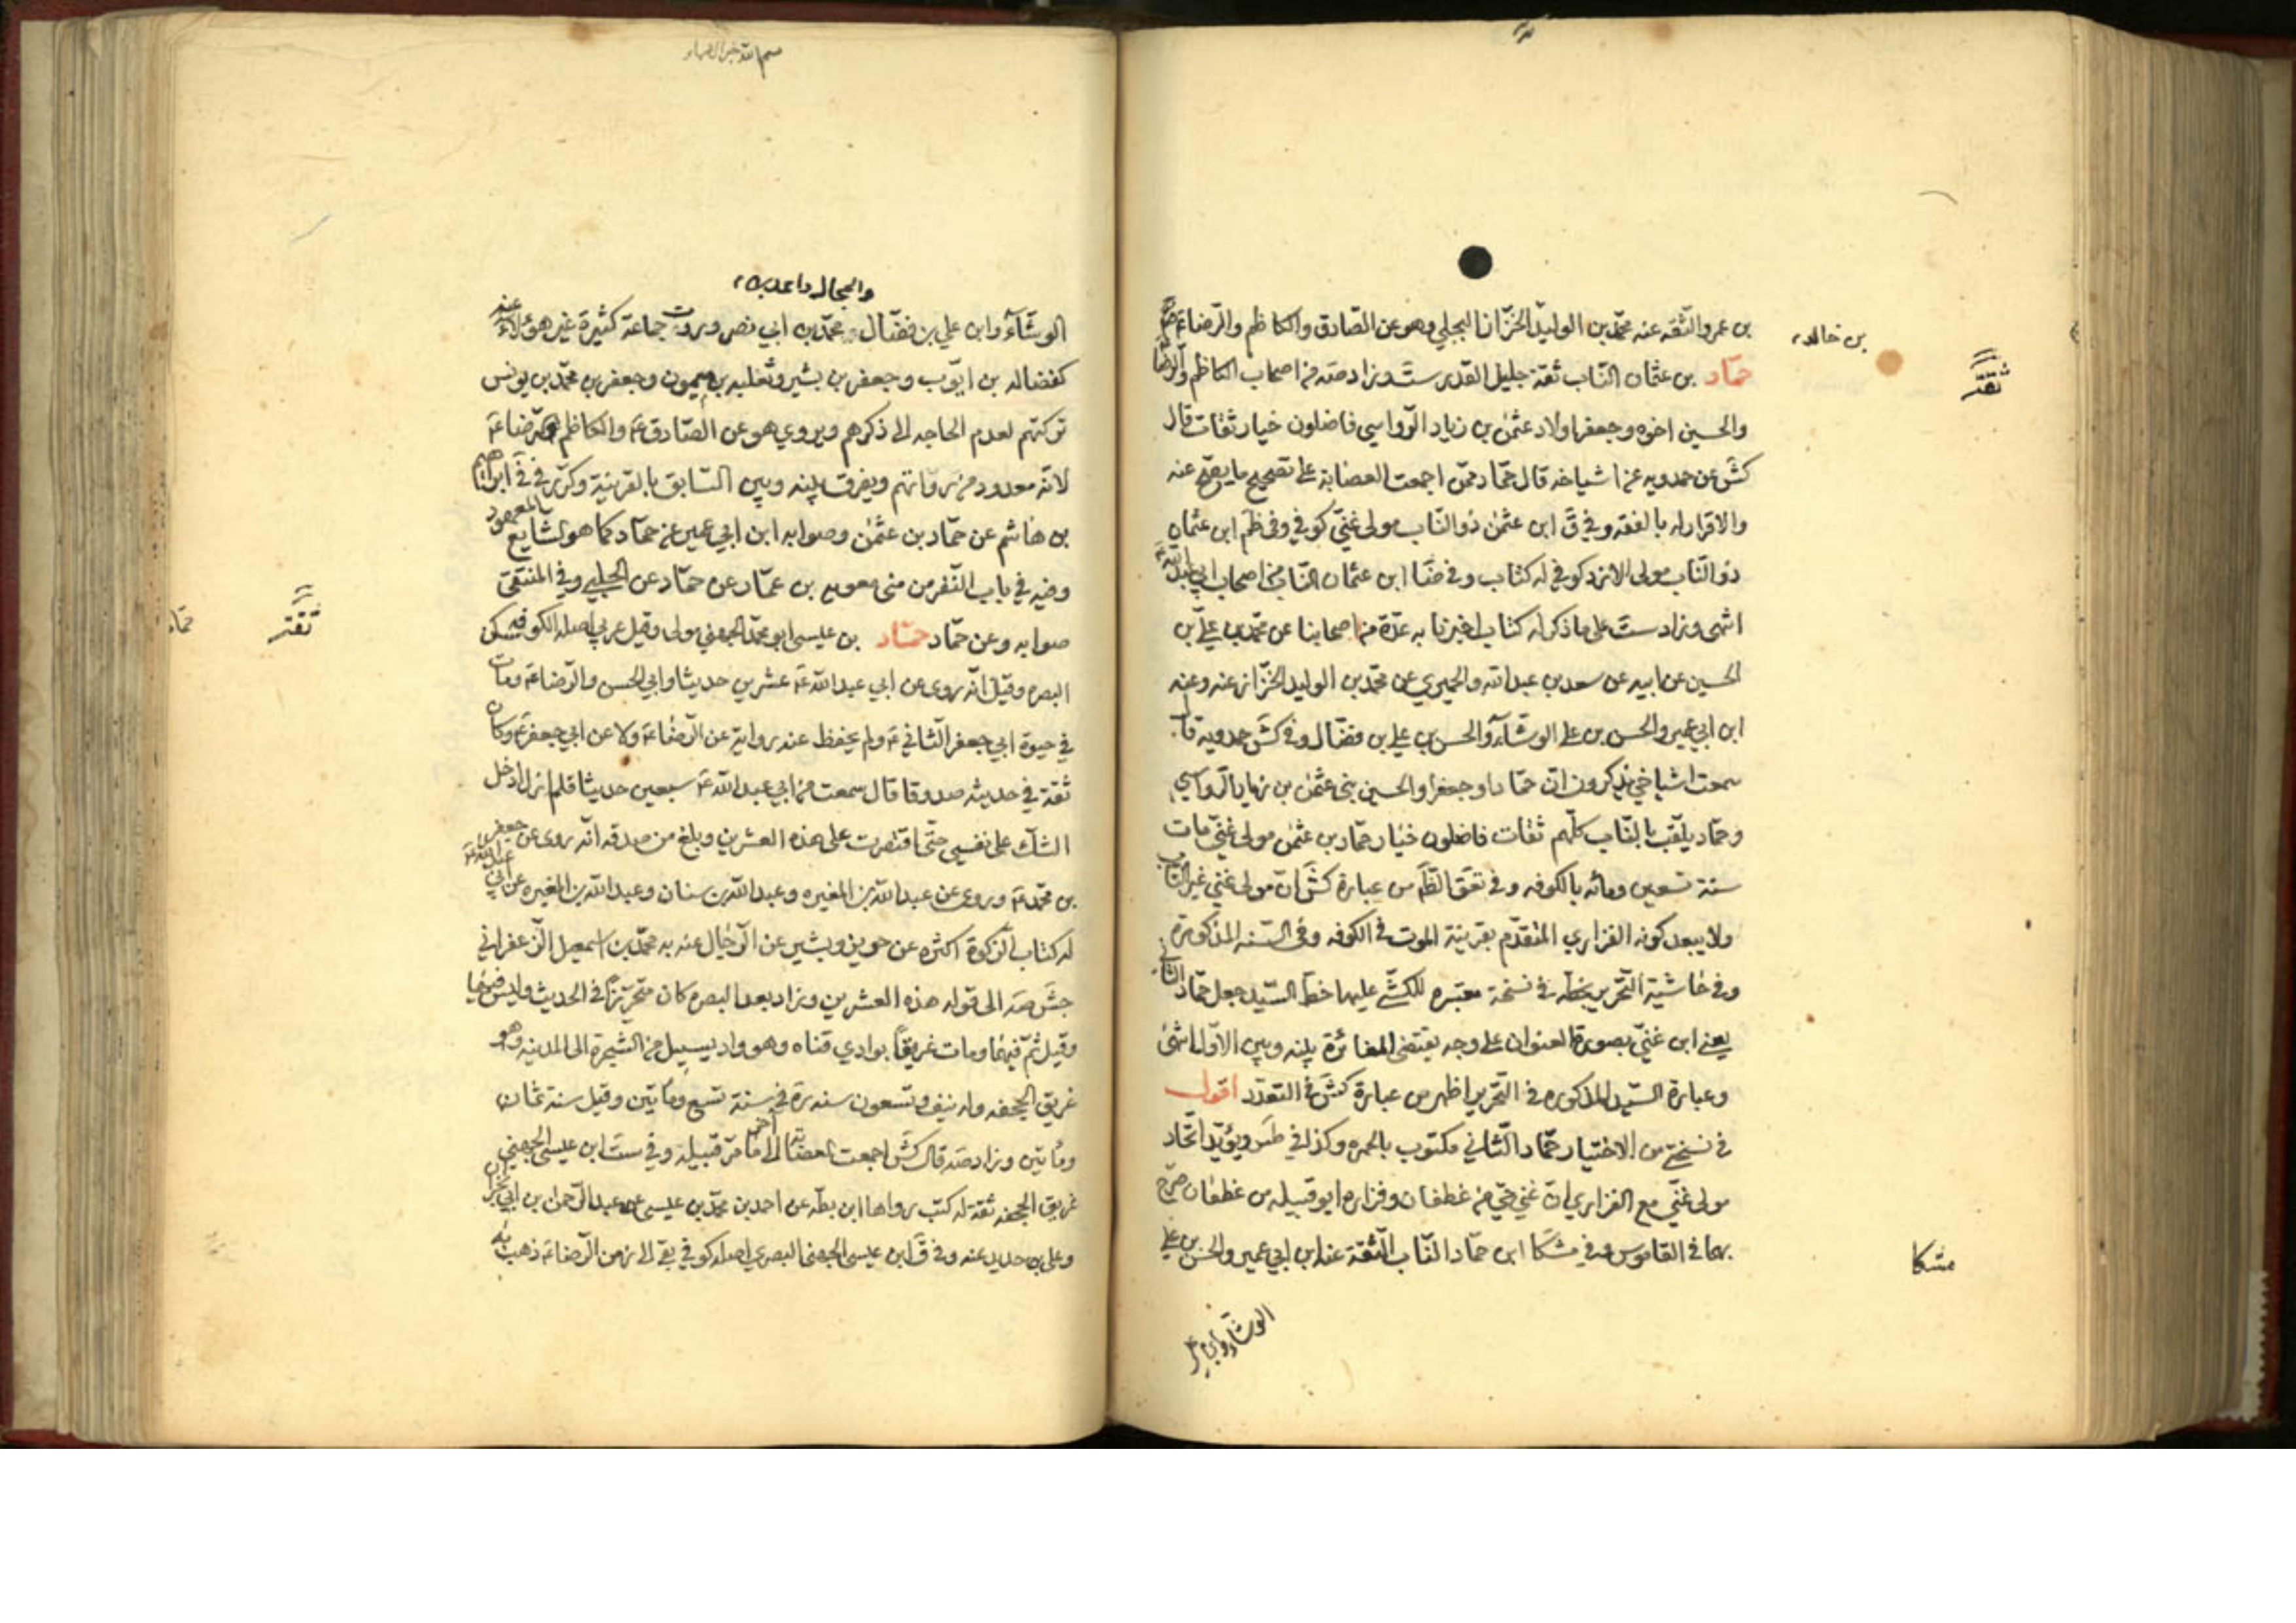 بن عمرو الثقه عنه محمد بن الوليد الخزاز البجلي وهو عن الصادق والكاظم والرضا ع
بن خالد
ثقة
حماد بن عثمان الناب ثقة جليل القدر ست وزاد صه من اصحاب الكاظم والرضا
والحسين اخوه وجعفر اولاد عثمن بن زياد الرواسي فاضلون خيار ثقات قال
كش عن حمدويه عن اشياخه قال حماد ممن اجمعت العصابة على تصحيح ما يصح عنه
والاقرار له بالفقه وفي ق ابن عثمن ذو الناب مولى غني كوفي وفي ظم ابن عثمان
ذو الناب مولى الازد كوفي له كتاب وفي ضا ابن عثمان الناب من اصحاب ابي عبدالله ع
انتهى وزاد ست على ما ذكر له كتاب اخبرنا به عدة من اصحابنا عن محمد بن علي بن
الحسين عن ابيه عن سعد بن عبد الله والحميري عن محمد بن الوليد الخزاز عنه وعنه
ابن ابي عمير والحسن بن علي الوشاء والحسن بن علي بن فضال وفي كش حمدويه قال
سمعت اشياخي يذكرون ان حمادا وجعفرا والحسين بني عثمن بن زياد الرواسي
وحماد يلقب بالناب كلهم ثقات فاضلون خيار حماد بن عثمن مولى غني مات
سنة تسعين ومائه بالكوفه وفي تعق الظ من عبارة كش ان مولى غني غير الناب
ولا يبعد كونه الفزاري المتقدم بقرينة الموت في الكوفه وفي السنه المذكورة
وفي حاشية التحرير بخطه في نسخة معتبره للكشي عليها خط السيد جعل حماد الثاني
يعني ابن غني بصورة العنوان على وجه يقتضي المغائرة بينه وبين الاول انتهى
وعبارة السيد المذكوره في التحرير اظهر من عبارة كش في التعدد اقول
في نسختي من الاختيار حماد الثاني مكتوب بالحمره وكذا في طس ويؤيد اتحاد
مولى غني مع الفزاري ان غني حي من غطفان وفزاره ابو قبيله من غطفان صرح
بهما في القاموس وفي مشكا ابن حماد الناب الثقة عنه ابن ابي عمير والحسن بن علي
مشكا
الوشاء وابن
والحجال
الوشاء وابن علي بن فضال ومحمد بن ابي نصر وروت جماعة كثيرة غير هؤلاء عنه
كفضاله بن ايوب وجعفر بن بشير وثعلبه بن ميمون وجعفر بن محمد بن يونس
تركتهم لعدم الحاجه الى ذكرهم ويروي هو عن الصادق ع والكاظم والرضا ع
لانه معدود من رواتهم ويفرق بينه وبين السابق بالقرينة وكرر في في ابراهيم
بن هاشم عن حماد بن عثمن وصوابه ابن ابي عمير عن حماد كما هو الشايع المعهود
وفيه في باب النفر من منى معويه بن عمار عن حماد عن الحلبي وفي المنتقى
صوابه وعن حماد حماد بن عيسى ابو محمد الجهني مولى وقيل عربي اصله الكوفه سكن
ثقة
حماد
البصره وقيل انه روى عن ابي عبد الله ع عشرين حديثا وابي الحسن والرضا ع ومات
في حيوة ابي جعفر الثاني ع ولم يحفظ عنه رواية عن الرضا ع ولا عن ابي جعفر ع وكان
ثقة في حديثه صدوقا قال سمعت من ابي عبد الله ع سبعين حديثا فلم ازل ادخل
الشك على نفسي حتى اقتصرت على هذه العشرين وبلغ من صدقه انه روى عن جعفر
بن محمد ع وروى عن عبد الله بن المغيره وعبد الله بن سنان وعبد الله بن المغيره عن ابي عبد الله ع
له كتاب الزكوة اكثره عن حريز وبشير عن الرجال عنه به محمد بن اسمعيل الزعفراني
جش صه الى قوله هذه العشرين وزاد بعد البصره كان متحرزا في الحديث وليس فيهما
وقيل ثم فيهما ومات غريقا بوادي قناه وهو واد يسيل من الشجرة الى المدينه وهو
غريق الجحفه وله نيف وتسعون سنه ره في سنة تسع ومأتين وقيل سنة ثمان
ومأتين وزاد صه قال كش اجمعت العصابه الى اخر ما مر قبيله وفي ست ابن عيسى الجهني
غريق الجحفه ثقة له كتب رواها ابن بطه عن احمد بن محمد بن عيسى عن عبد الرحمن بن ابي نجران
وعلي بن حديد عنه وفي ق ابن عيسى الجهني البصري اصله كوفي بقي الى زمن الرضا ع ذهب به